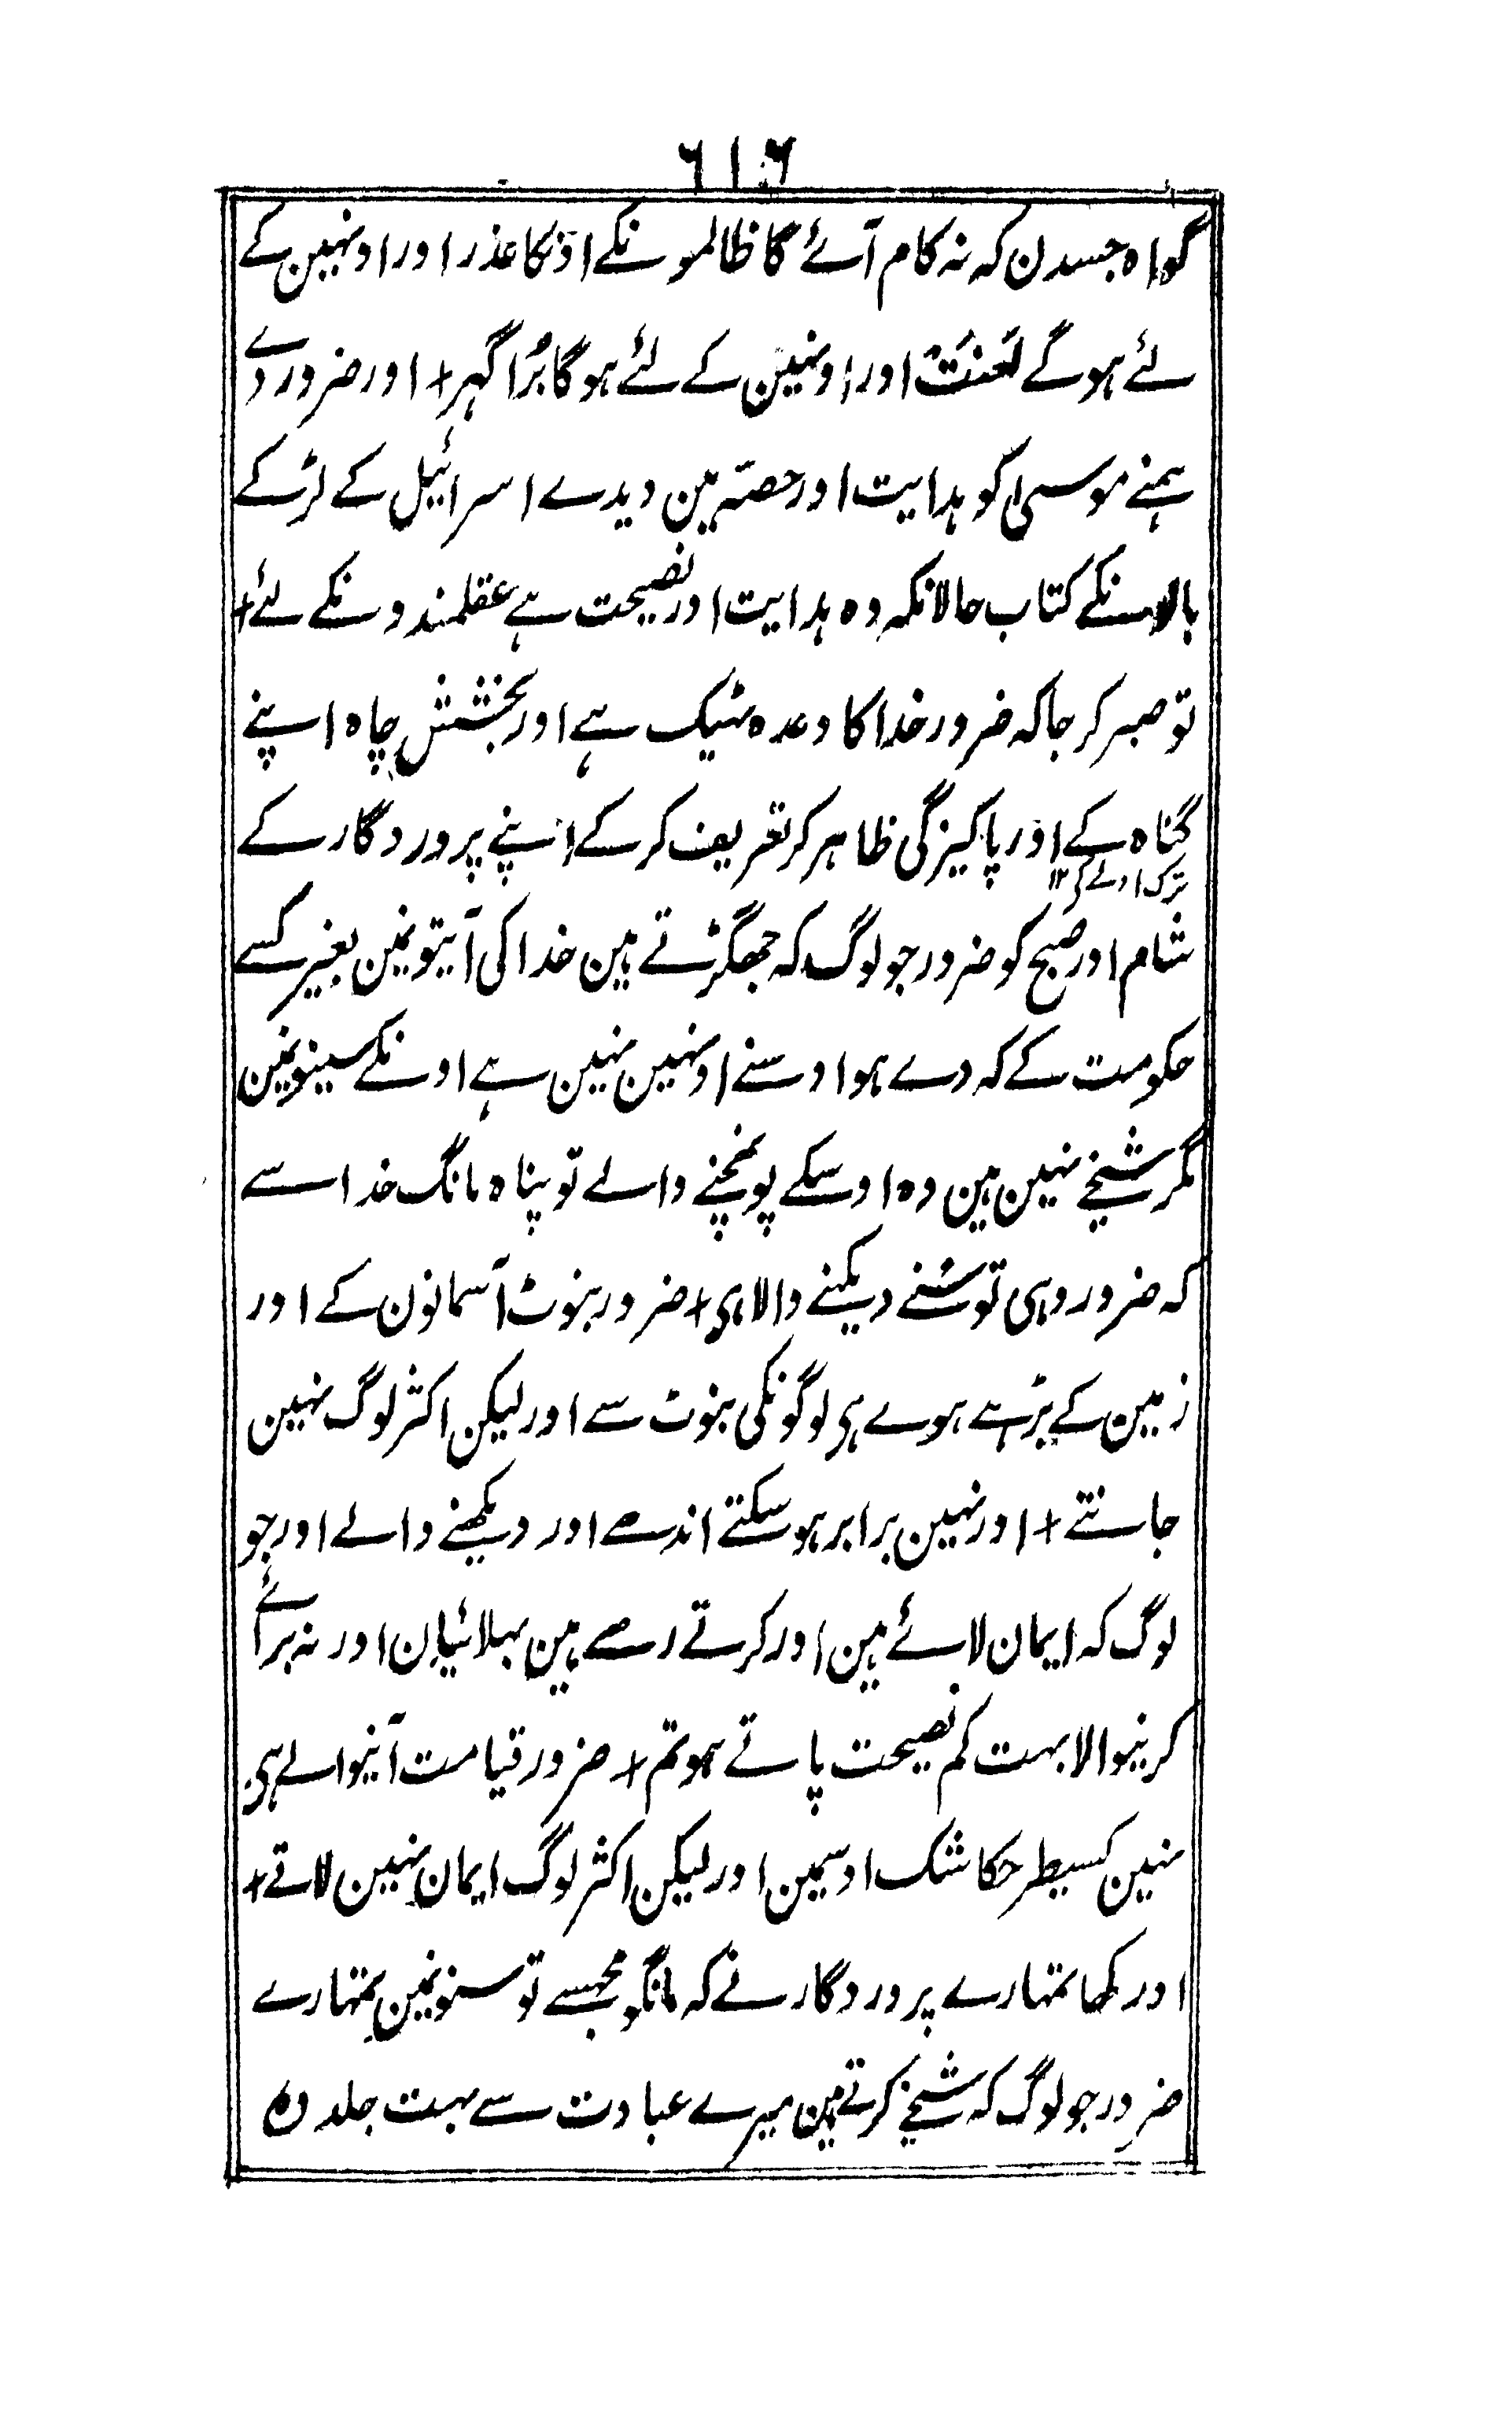 ٦١٦
گواہ جسدن کہ نہ کام آئے گا ظالمونکے اونکا عذر اور اونہین کے
لئے ہوگے لعنت اور اونہین کے لئے ہوگا بُرا گہر + اور ضرور دے
ہمنے موسیٰ کو ہدایت اور حصّہ مین دیدے اسرائیل کے لڑکے
بالونکے کتاب حالانکہ وہ ہدایت اور نصیحت ہے عقلمندونکے لئے +
تو صبر کر جا کہ ضرور خدا کا وعدہ ٹہیک ہے اور بخشش چاہ اپنے
گناہ کے اور پاکیزگی ظاہر کر تعریف کرکے اپنے پروردگار کے
ترک اولے کی ۱۲
شام اور صبح کو ضرور جو لوگ کہ جھگڑتے ہین خدا کی آیتونمین بغیر کسے
حکومت کے کہ دے ہو اوسنے اونہین نہین ہے اونکے سینونمین
مگر شیخے نہین ہین وہ اوسکے پونہچنے والے تو پناہ مانگ خدا سے
کہ ضرور وہی تو سُننے دیکہنے والا ہی + ضرور بنوٹ آسمانون کے اور
زمین کے بڑہے ہوے ہی لوگونکی بنوٹ سے اور لیکن اکثر لوگ نہین
جانتے + اور نہین برابر ہو سکتے اندھے اور دیکھنے والے اور جو
لوگ کہ ایمان لائے ہین اور کرتے رہے ہین بہلائیان اور نہ برائے
کرنیوالا بہت کم نصیحت پاتے ہو تم + ضرور قیامت آنیوالے ہی
نہین کسیطرحکا شک اوسمین اور لیکن اکثر لوگ ایمان نہین لاتے +
اور کہا تمہارے پروردگار نے کہ مانگو مجہسے تو سنونمین تمہارے
ضرور جو لوگ کہ شیخے کرتے ہین میرے عبادت سے بہت جلد وہ